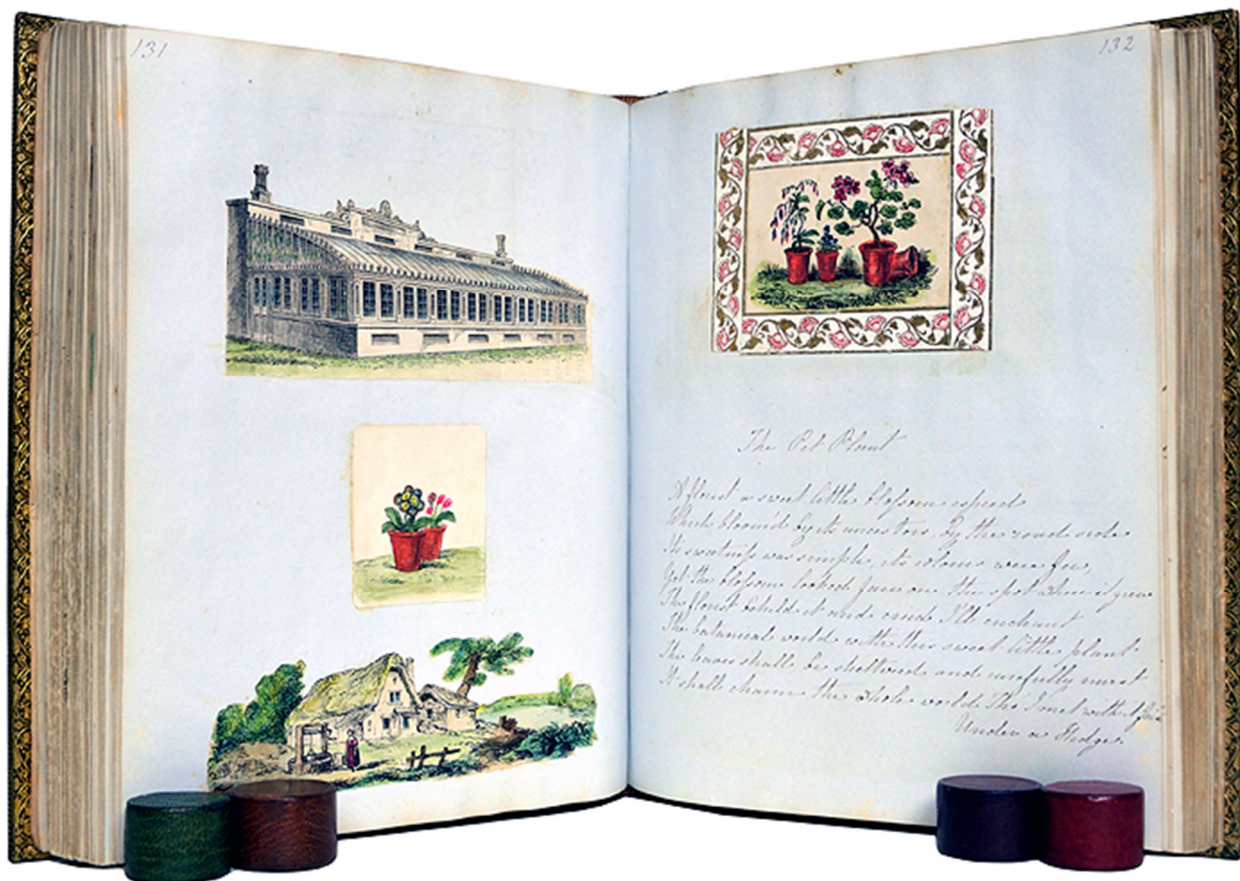 131
132
The Pet Plant
A florist a sweet little blossom espied
Which bloom'd by its ancestors by the road side
Its sweetness was simple its colours were few,
Yet the blossom looked fair on the spot where it grew
The florist beheld it and cried I'll enchant
The botanical world with this sweet little plant
The leaves shall be sheltered and carefully nurst
It shall charm the whole world Tho' I met with it first
Under a Hedge.